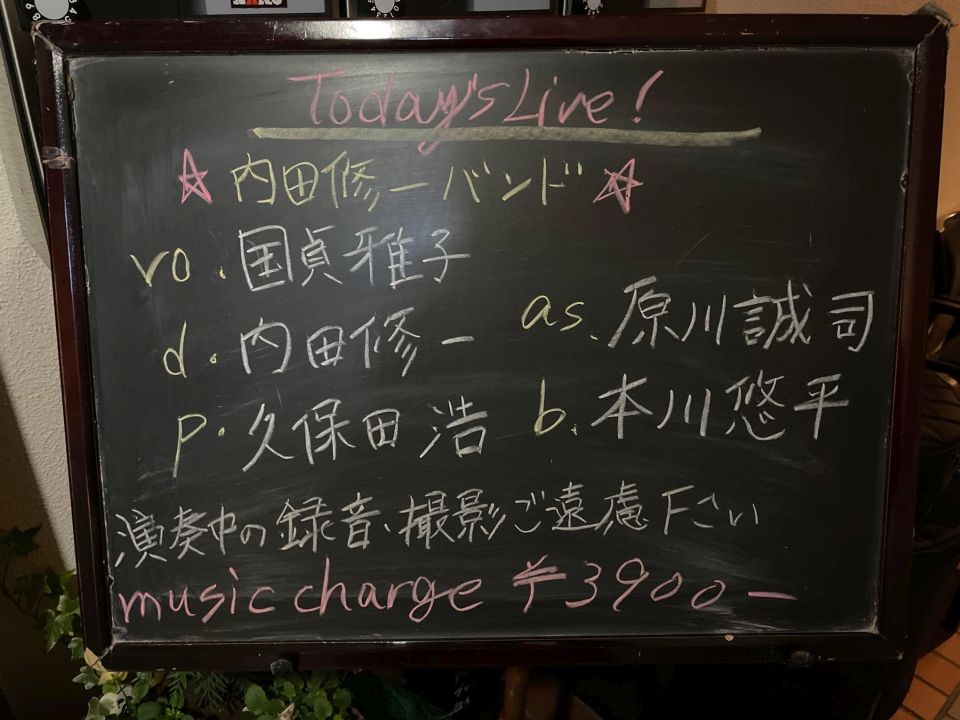 Today's Live!
☆内田修一バンド☆
vo.国貞雅子
d.内田修一
as.原川誠司
p.久保田浩
b.本川悠平
演奏中の録音、撮影ご遠慮下さい
music charge ¥3900ー